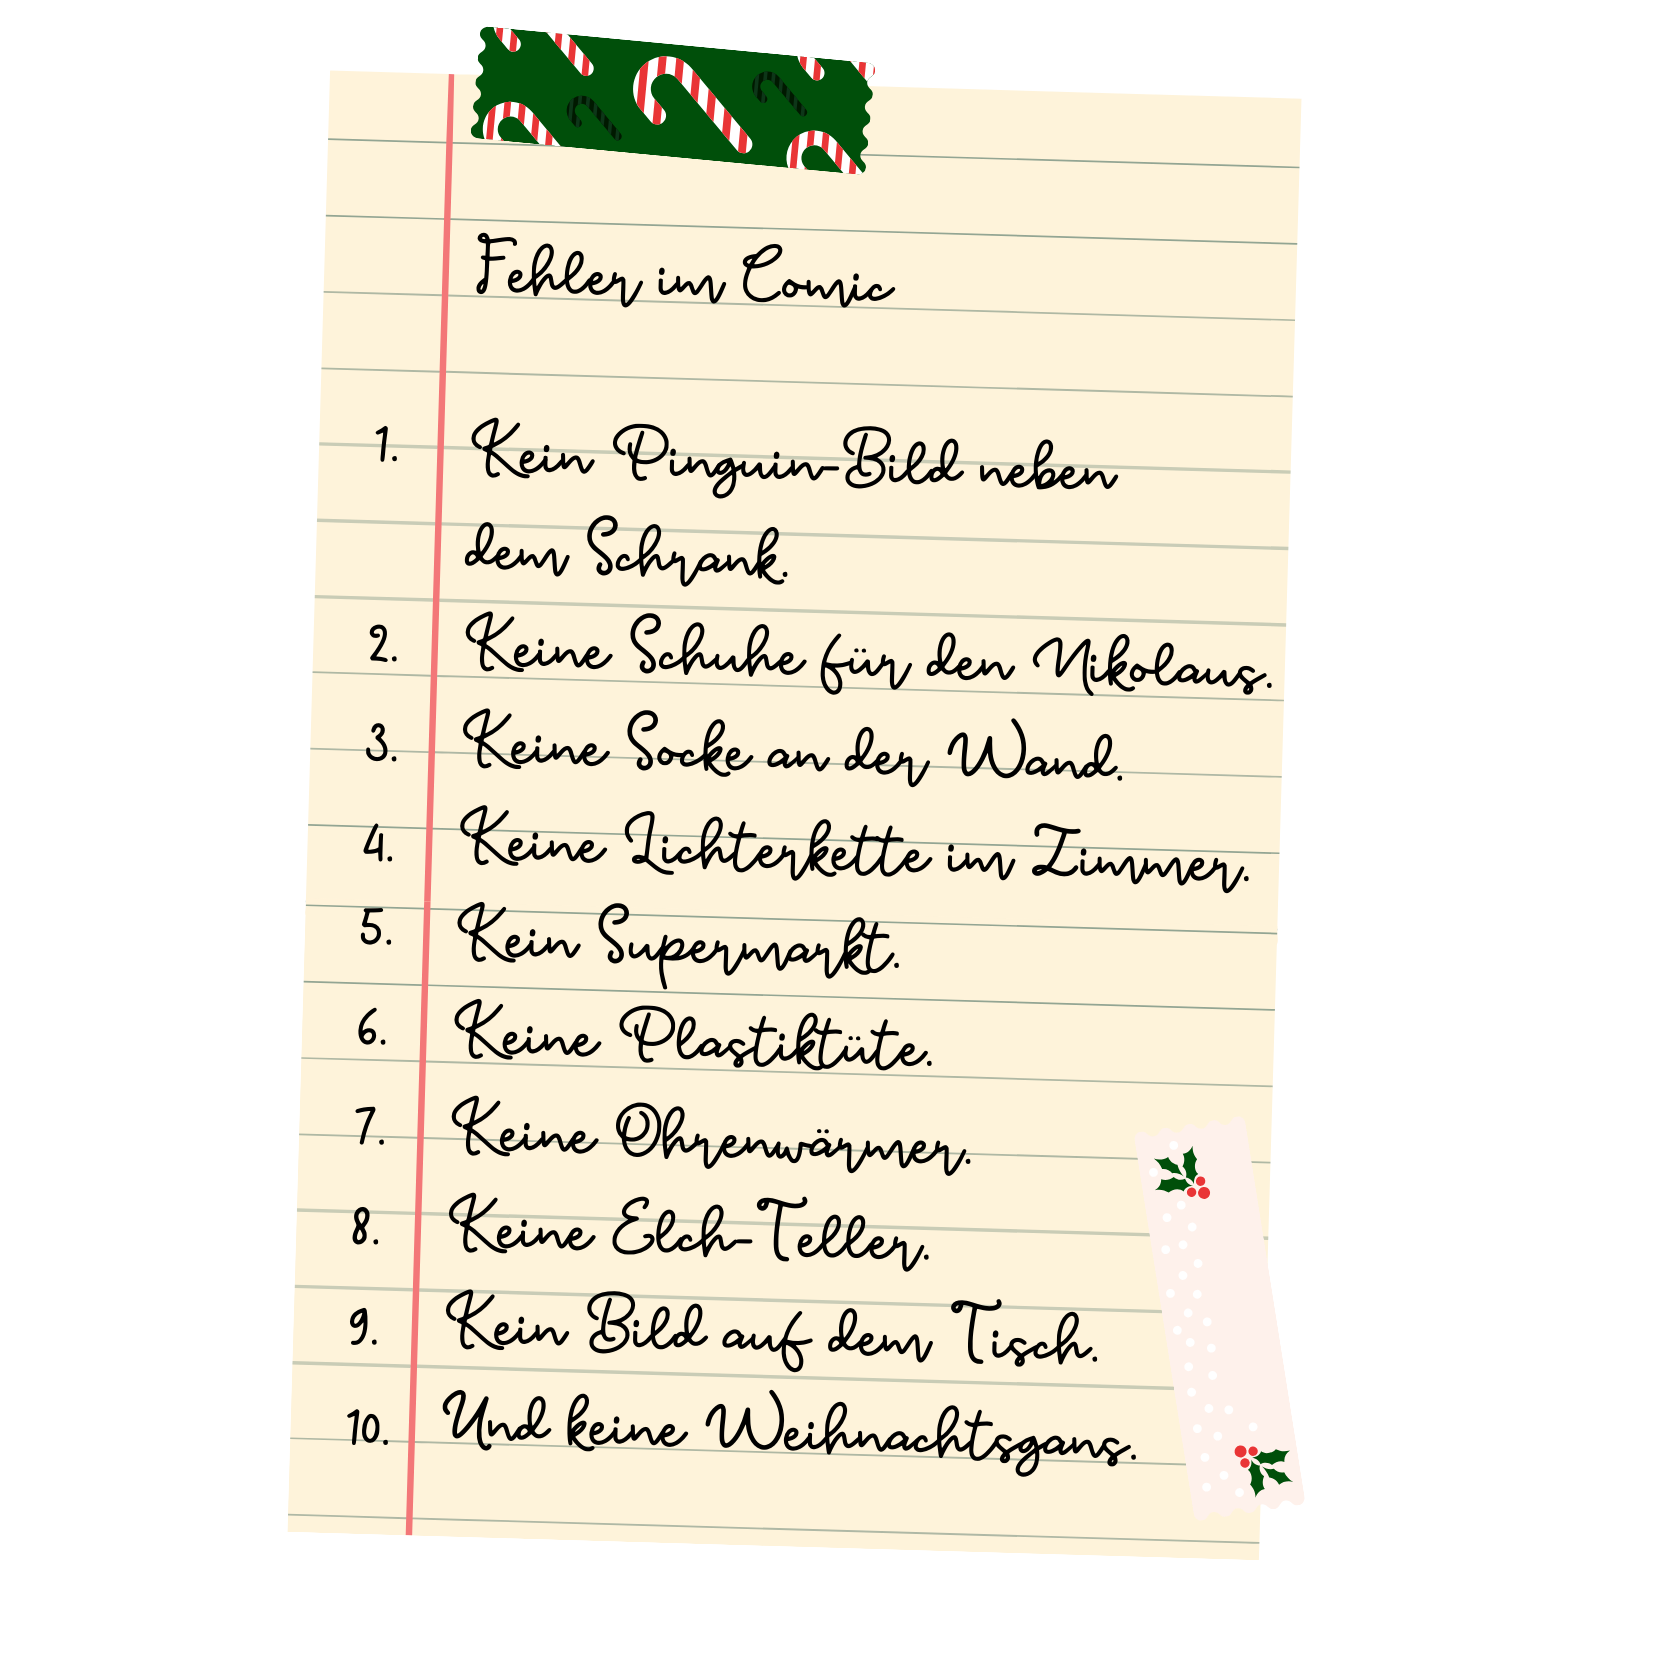 Fehler im Comic
1. Kein Pinguin-Bild neben
dem Schrank.
2. Keine Schuhe für den Nikolaus.
3. Keine Socke an der Wand.
4. Keine Lichterkette im Zimmer.
5. Kein Supermarkt.
6. Keine Plastiktüte.
7. Keine Ohrenwärmer.
8. Keine Elch-Teller.
9. Kein Bild auf dem Tisch.
10. Und keine Weihnachtsgans.